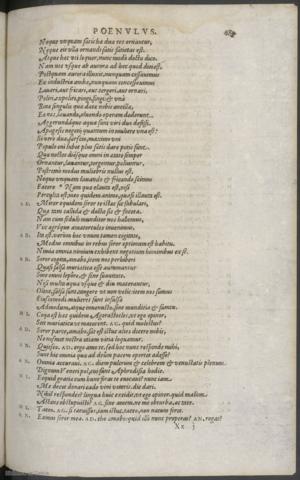 POENVLVS.
Neque vnquam satis hæ duæ res ornantur,
Neque eis vlla ornandi satis satietas est.
Atque hæc vti loquor, nunc modò docta dico.
Nam nos vsque ab aurora ad hoc quod diei est,
Postquam aurora illuxit, nunquam cessauimus
Ex industria ambæ, nunquam concessauimus
Lauari, aut fricari, aut tergeri, aut ornari,
Poliri, expoliri, pingi, fingi: & vnà
Binæ singulis quæ datæ nobis ancillæ,
Eæ nos lauando, eluendo operam dederunt
Aggerundáque aqua sunt viri duo defessi.
Apage sis negoti quantum in muliere vna est:
Sed verò duæ, sat scio, maxumo vni
Populo cui lubet plus satis dare potis sunt.
Quæ noctes diésque omni in ætate semper
Ornantur, lauantur, tergentur, poliuntur.
Postremò modus muliebris nullus est.
Neque vnquam lauando & fricando scimus
Facere * Nam quæ elauta est, nisi
Perculta est, meo quidem animo, quasi illauta est.
A D. Miror equidem soror te istæc sic fabulari,
Quæ tam callida & docta sis & faceta.
Nam cum sedulò munditer nos habemus,
Vix ægréque amatorculos inuenimus.
A N. Ita est. verùm hoc vnum tamen cogitato,
Modus omnibus in rebus soror optimum est habitu.
Nimia omnia nimium exhibent negotium hominibus ex se.
A N. Soror cogita, amabo, item nos perhiberi
Quasi salsa muriatica esse autumantur
Sine omni lepore, & sine suauitate.
Nisi multa aqua vsque & diu macerantur,
Olent, salsa sunt, tangere vt non velis: item nos sumus
Eiusmodi mulieres sunt insulsæ
Admodum, atque inuenustæ, sine munditia & sumtu.
Coqua est hæc quidem Agorastocles, vt ego opinor,
Scit muriatica vt maceret. AG. quid molestus?
A D. Soror parce, amabo, sat est istuc alios dicere nobis,
Ne nosmet nostra etiam vitia loquamur.
A N. Quiesco. AD. ergo amo te, sed hoc nunc responde mihi,
Sunt hic omnia quæ ad deûm pacem oportet adesse?
A N. Omnia accuraui. AG. diem pulcrum & celebrem & venustatis plenum.
Dignum Veneri pol, cui sunt Aphrodisia hodie.
Ecquid gratiæ cum huc foras te euocaui? nunc iam
Me decet donari cado vini veteris. dic dari.
Nihil respondes? lingua huic excidit, vt ego opinor. quid malum
Astans obstupuisti? AG. sine amem, ne me obturba, ac tace.
A N. Eamus soror mea. AD. eho amabo quid illi nunc properas? AN. rogas?
Xx j